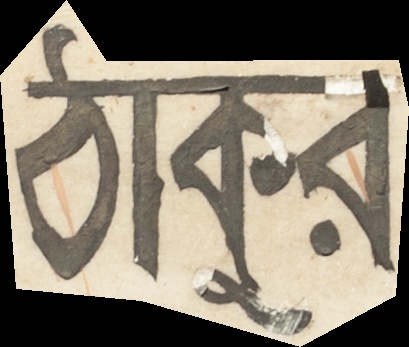 ঠাকুর